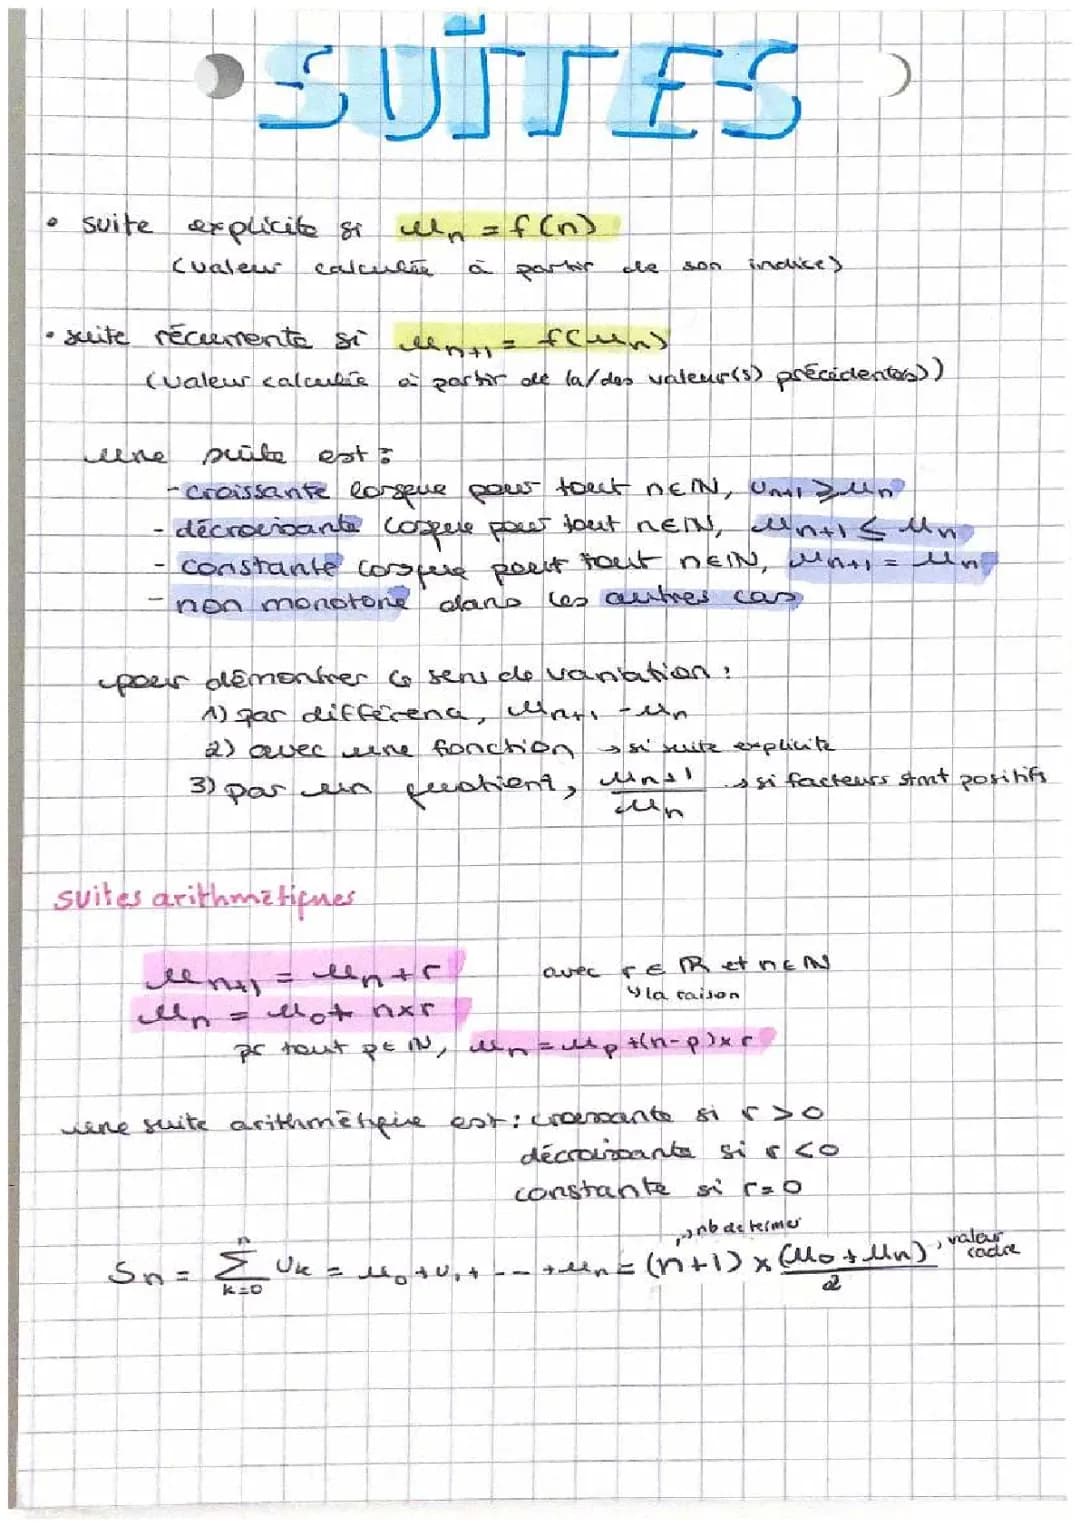 SUITES
• suite explicite si un = f(n)
(valeur calculée à partir de son indice)
• suite récurrente si un+1 = f(un)
(valeur calculée à partir de la/des valeur(s) précédente(s))
une suite est :
- croissante lorsque pour tout n∈ℕ, Un+1 ⩾ un
- décroissante lorsque pour tout n∈ℕ, un+1 ≤ un
- constante lorsque pour tout n∈ℕ, un+1 = un
- non monotone dans les autres cas
pour démontrer le sens de variation :
1) par différence, un+1 - un
2) avec une fonction → si suite explicite
3) par un quotient, un+1/un → si facteurs strnt positifs
suites arithmétiques
un+1 = un + r avec r ∈ ℝ et n ∈ ℕ
↳ la raison
un = u0 + n×r
pr tout p ∈ ℕ, un = up + (n-p)×r
une suite arithmétique est : croissante si r > 0
décroissante si r < 0
constante si r = 0
→ nb de termes
Sn = Σ(k=0 → n) Uk = u0 + U1 + --- + un = (n+1) × (u0 + un)/2 → valeur